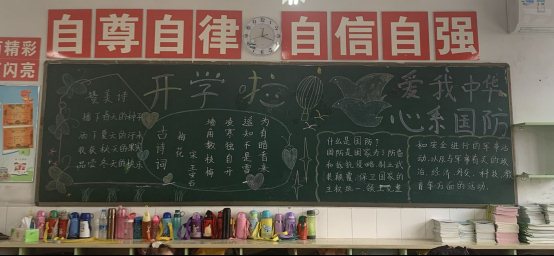 自尊自律
自信自强
精彩
闪亮
赞美诗
播下春天的种子
洒下夏天的汗水
收获秋天的果实
品尝冬天的快乐
开学啦
古诗词
梅花
宋 王安石
墙角数枝梅
凌寒独自开
遥知不是雪
为有暗香来
爱我中华
心系国防
什么是国防?
国防是国家为了防备
和抵抗侵略,制止武
装颠覆,保卫国家的
主权统一、领土完整
和安全进行的军事活
动,以及与军事有关的政
治、经济、外交、科技、教
育等方面的活动。